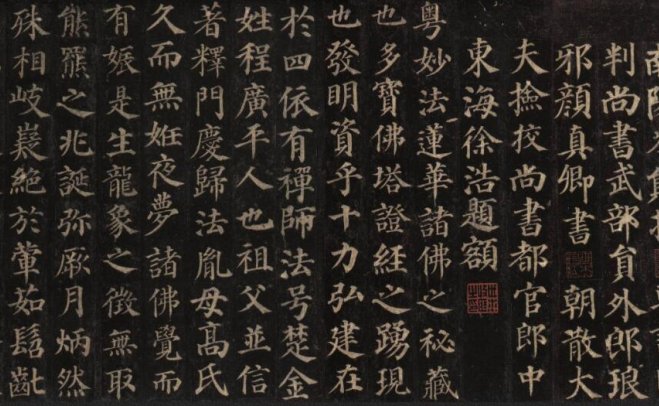 判尚書武部員外郎琅
邪顏真卿書 朝散大
夫撿挍尚書都官郎中
東海徐浩題額
粵妙法蓮華諸佛之祕藏
也多寶佛塔證經之踴現
也發明資乎十力弘建在
於四依有禪師法号楚金
姓程廣平人也祖父並信
著釋門慶歸法胤母高氏
久而無姙夜夢諸佛覺而
有娠是生龍象之徵無取
熊羆之兆誕弥厥月炳然
殊相岐嶷絕於葷茹髫齓